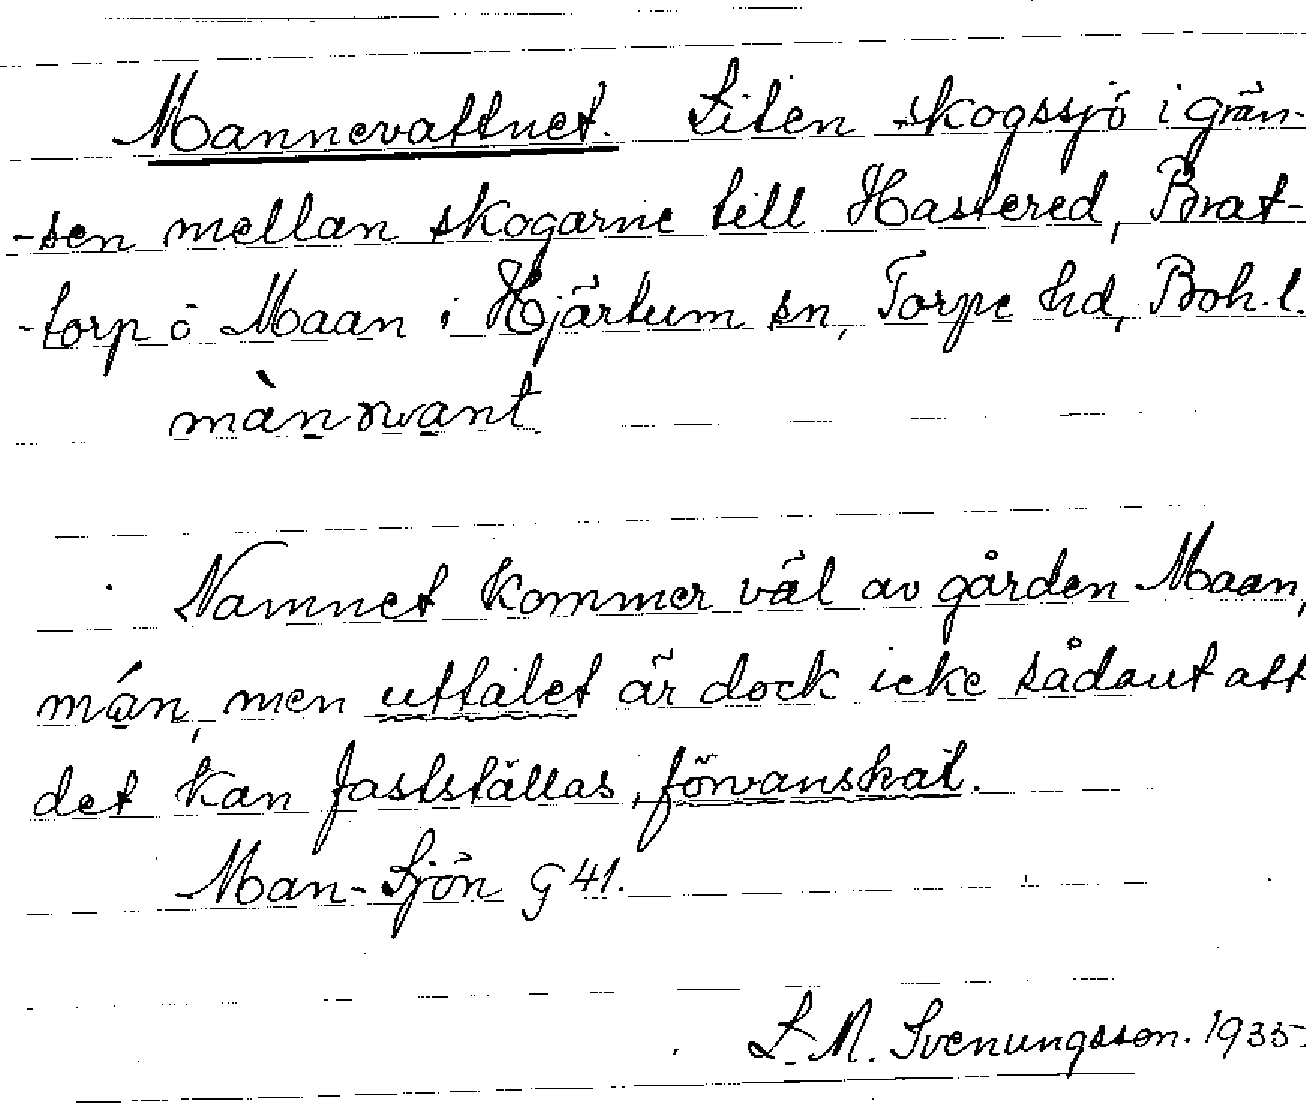 Mannevattnet. Liten skogssjö i grän-
-sen mellan skogarne till Hastered, Brat-
-torp o Maan i Hjärtum sn, Torpe hd, Boh. l.
Namnet kommer väl av gården Maan,
mán, men uttalet är dock icke sådant att
det kan fastställas, förvanskat.
Man-Sjön G 41.
L. M. Svenungsson. 1935.